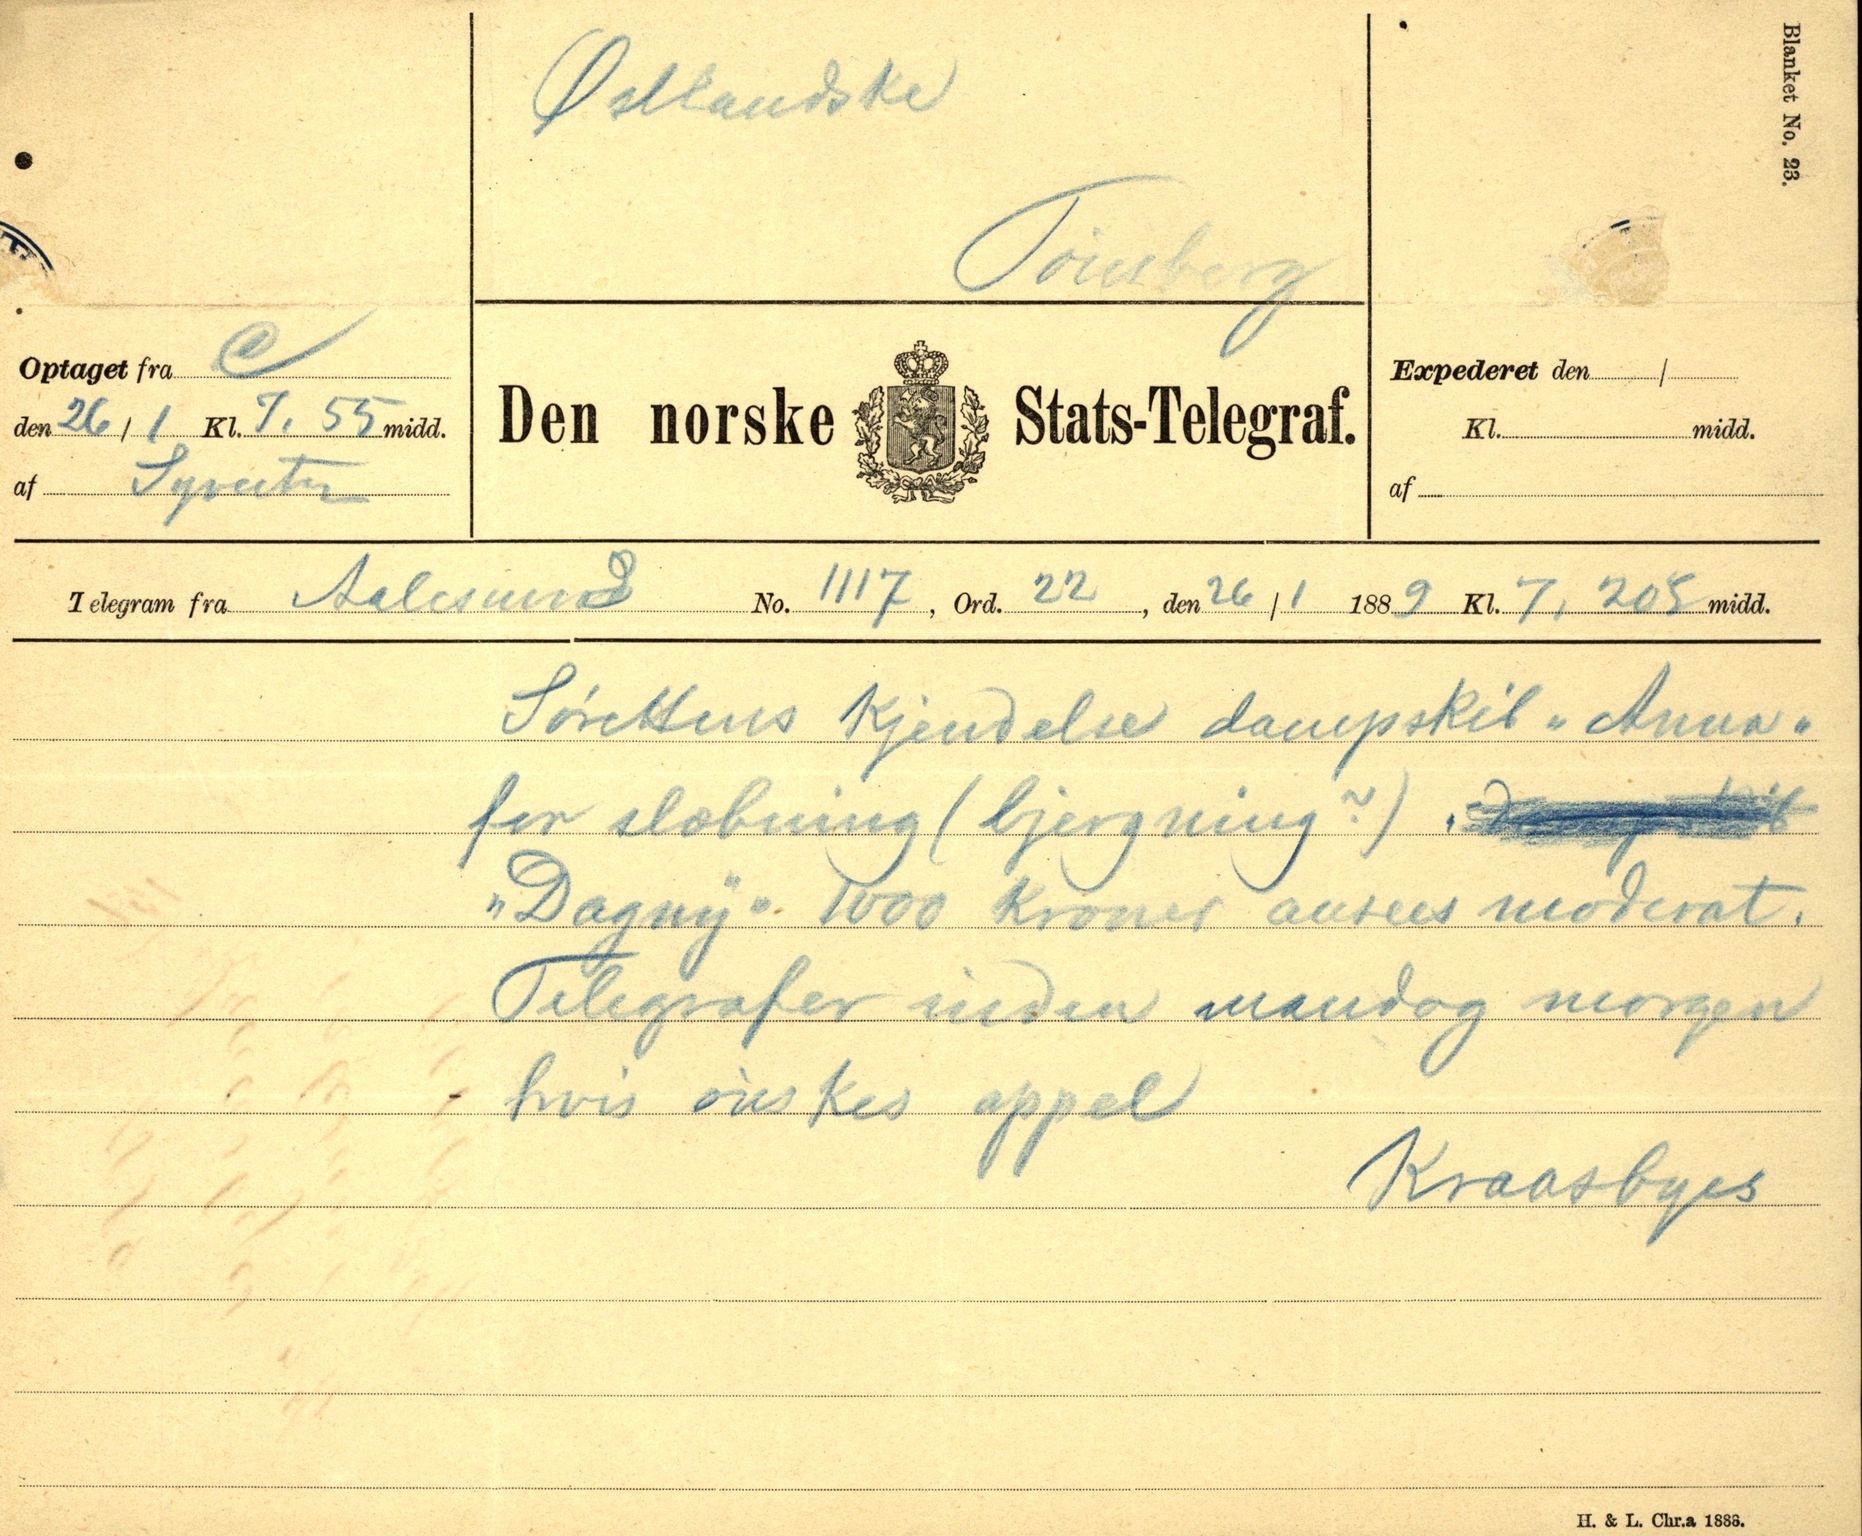 Blanket No. 23.
Østlandske
Tönsberg
Optaget fra C
den 26/1 Kl. 7. 55 midd.
af
Den norske Stats-Telegraf.
Expederet den /
Kl. midd.
af
Telegram fra Aalesund No. 1117, Ord. 22, den 26/1 1889 Kl. 7, 20 s midd.
Sörettens Kjendelse dampskib "Anna"
for slæbning (bjergning?).
"Dagny" 1000 Kroner ansees moderat.
Telegrafer inden mandag morgen
hvis önskes appel
Kraasbyes
H. & L. Chr.a 1888.